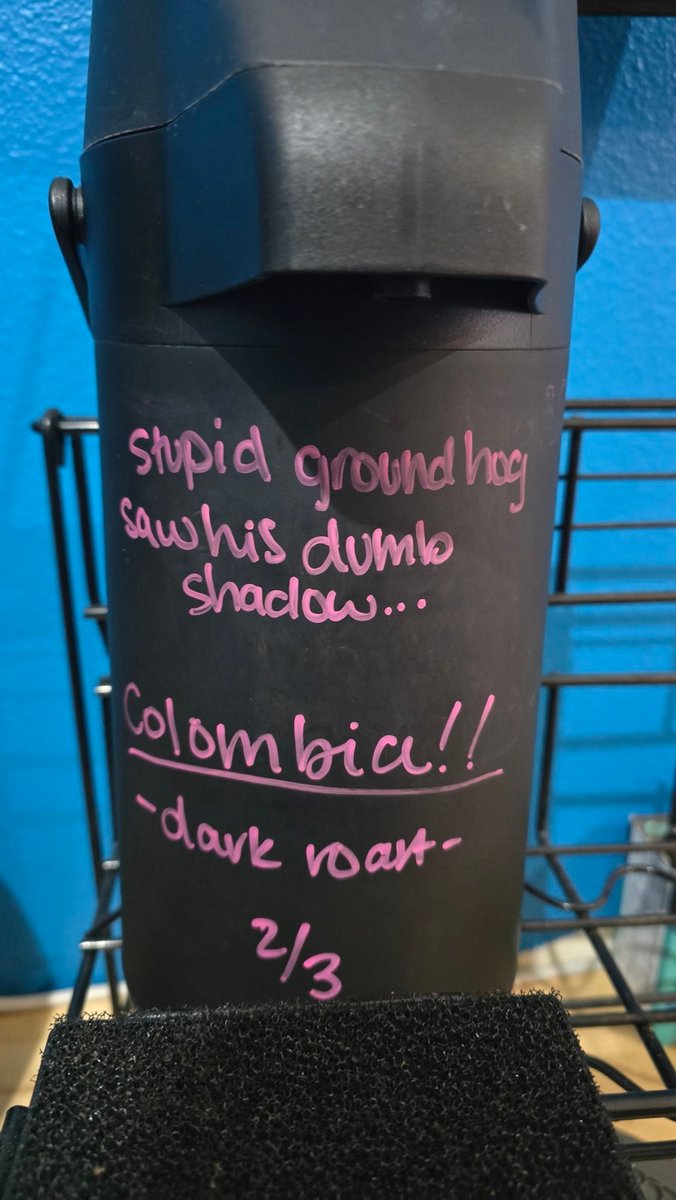 stupid groundhog
saw his dumb
shadow...
Colombia!!
-dark roast-
2/3